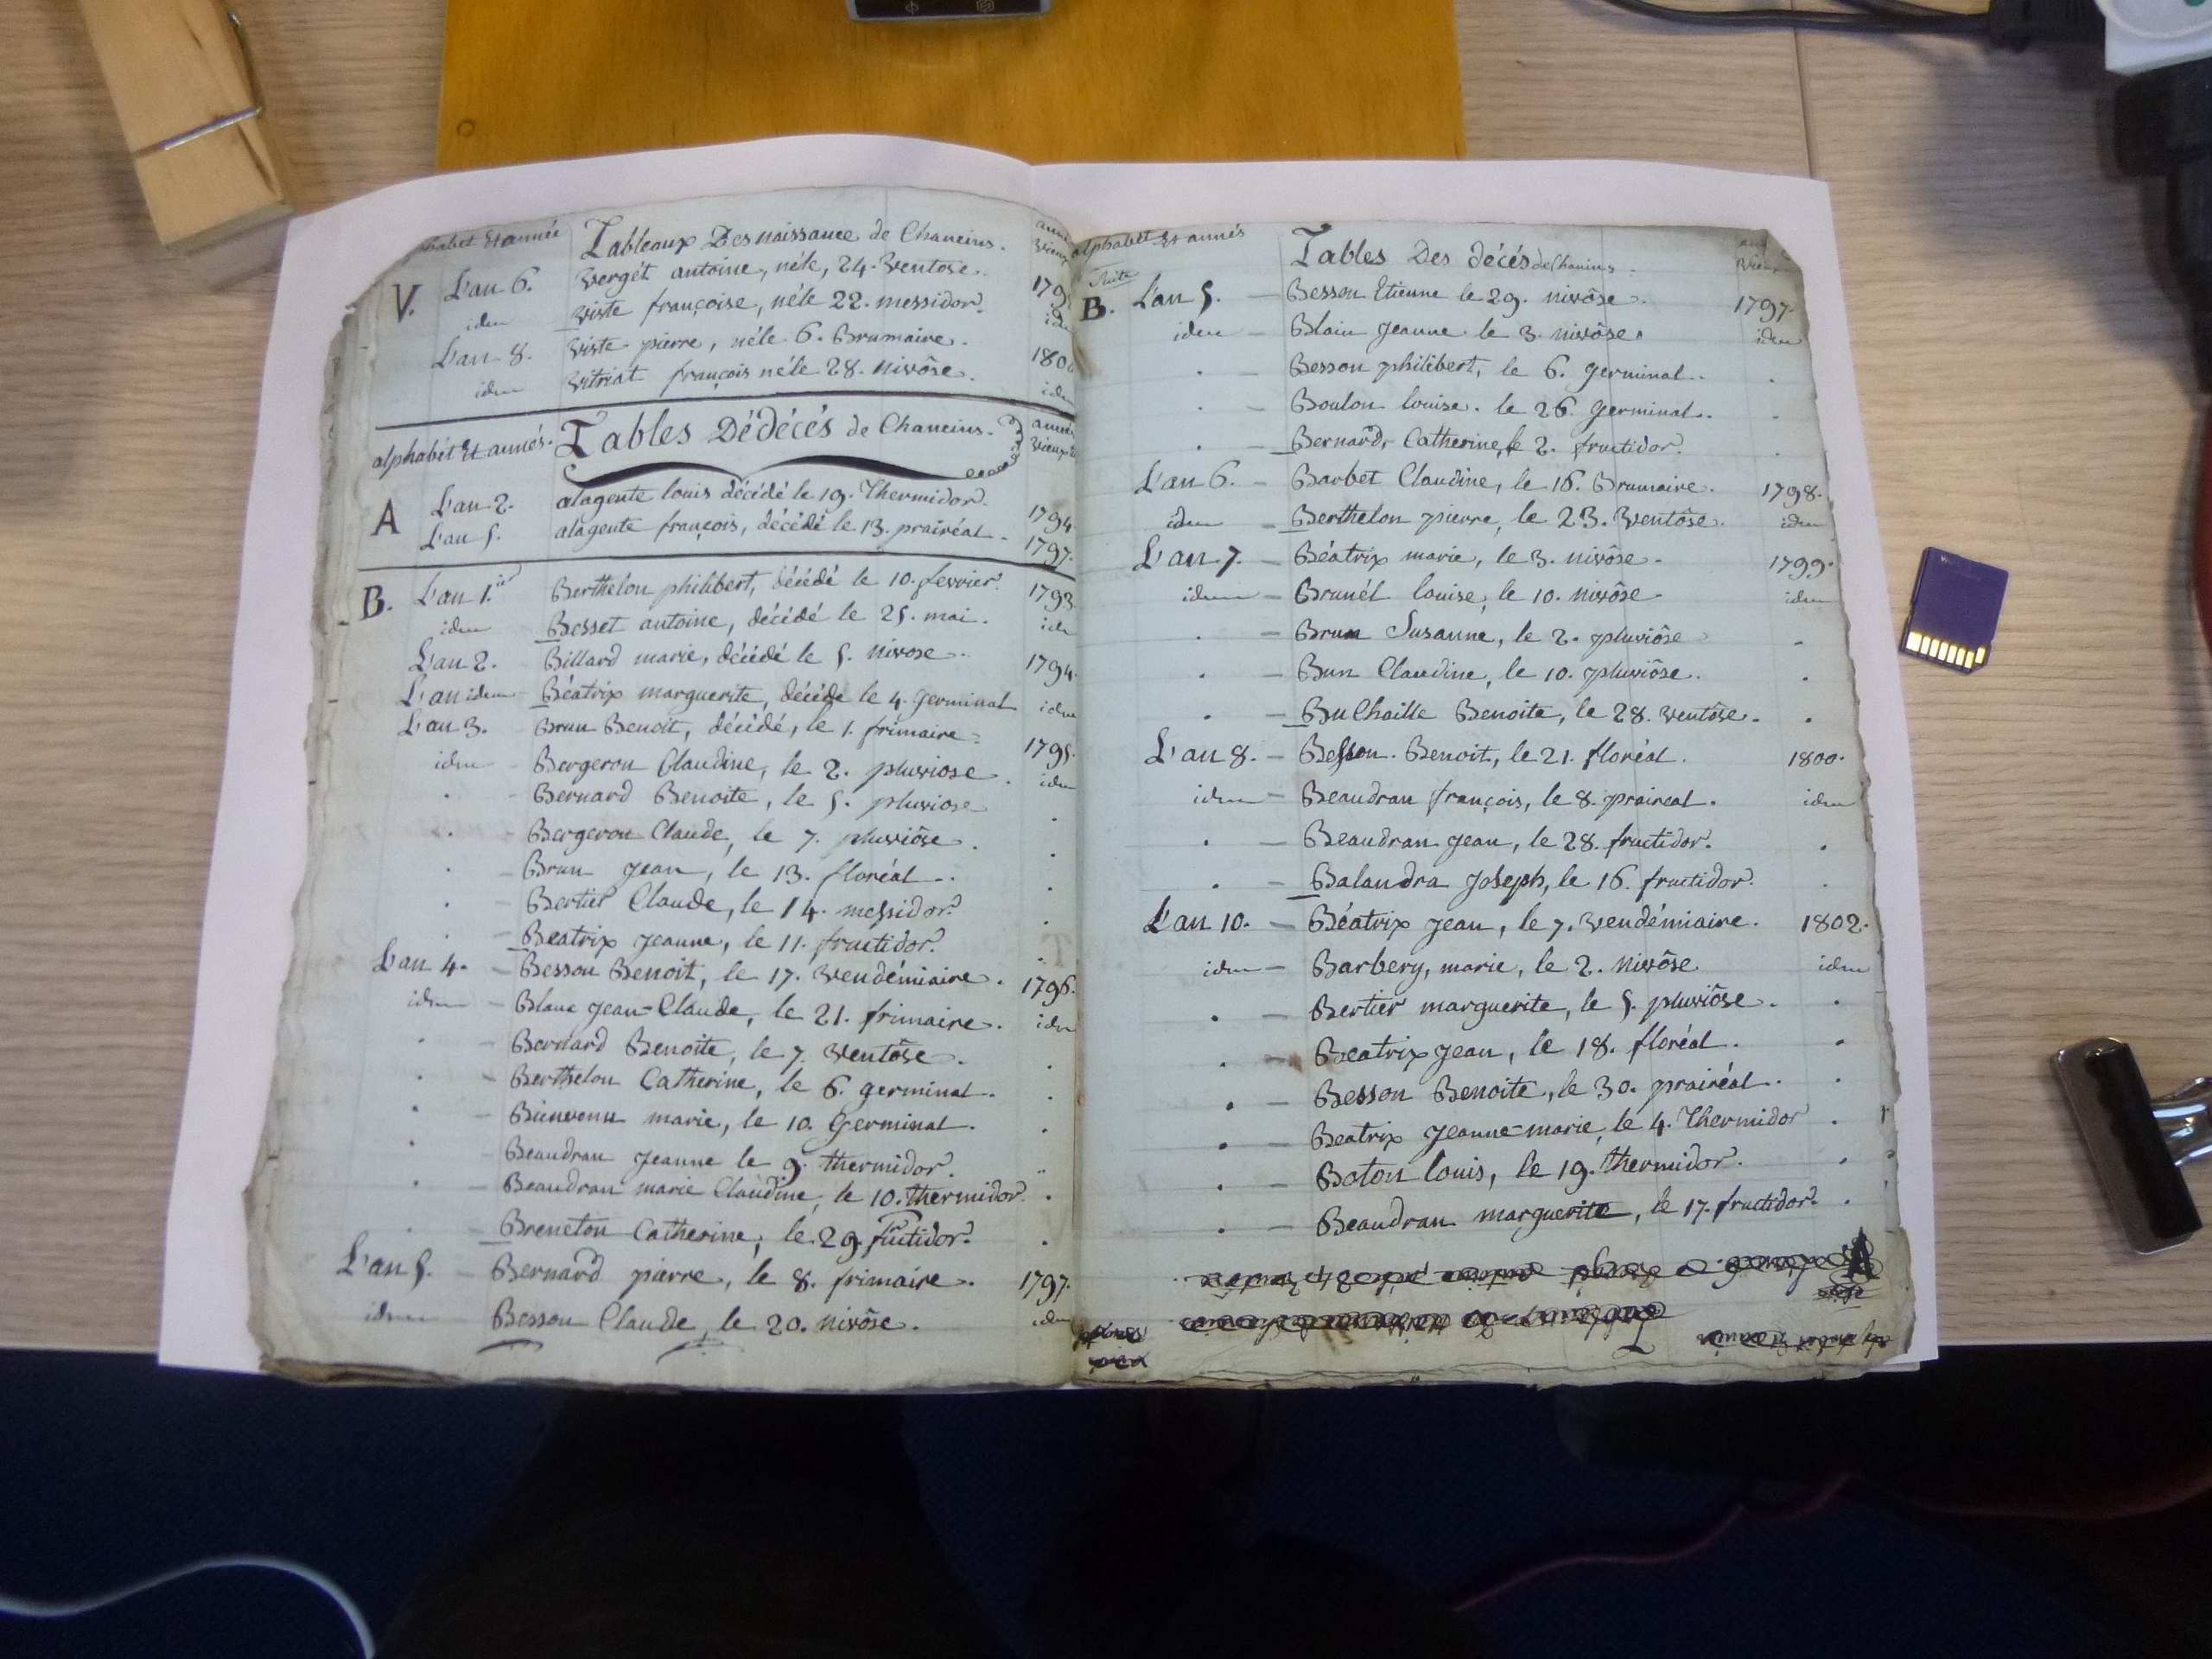 alphabet et année Tableaux Des naissance de Chaneins.
V. L'an 6. Vergét antoine, né le, 24. Ventose.
idem Viste françoise, né le 22. messidor. idem
L'an 8. Viste pierre, né le 6. Brumaire. 1800
idem Vitriat françois né le 28. nivôse. idem
alphabét et année. Tables Dédécés de Chaneins. année vieux
A L'an 2. alagente louis décédé le 19. Thermidor. 1794
L'an 5. alagente françois, décédé le 13. prairéal. 1797.
B. L'an 1.ier Berthelon philibert, décédé le 10. fevrier. 1793
idem Besset antoine, décédé le 25. mai. idem
L'an 2. Billard marie, décédé le 5. nivose. 1794.
L'an idem Béatrix marguerite, décéde le 4. germinal idem
L'an 3. Brun Benoit, décédé, le 1. frimaire. 1795.
idem Bergeron Claudine, le 2. pluviose. idem
. Bernard Benoite, le 5. pluviose .
. Bergeron Claude, le 7. pluviôse. .
. Brun jean, le 13. floréal. .
. Bertier Claude, le 14. messidor. .
. Beatrix jeanne, le 11. fructidor. .
L'an 4. Besson Benoit, le 17. vendémiaire. 1796.
idem Blanc jean-Claude, le 21. frimaire. idem
. Bernard Benoite, le 7. ventôse. .
. Berthelon Catherine, le 6. germinal. .
. Bienvenu marie, le 10. Germinal. .
. Beaudran jeanne le 9. thermidor. .
. Beaudran marie Claudine, le 10. thermidor. .
. Breneton Catherine, le 29. fructidor. .
L'an 5. Bernard pierre, le 8. frimaire. 1797.
idem Besson Claude le 20. nivôse. idem
alphabet et année Tables Des décés de Chaneins.
Suite
B. L'an 5. – Besson Etienne le 29. nivôse. 1797.
idem – Blain jeanne le 3. nivôse. idem
. – Besson philibert, le 6. germinal. .
. – Boulon louise. le 26. germinal. .
. – Bernard, Catherine, le 2. fructidor. .
L'an 6. – Barbet Claudine, le 16. Brumaire. 1798.
idem – Berthelon pierre, le 23. ventôse. idem
L'an 7. – Béatrix marie, le 3. nivôse. 1799.
idem – Brunél louise, le 10. nivôse. idem
. – Brun Susanne, le 2. pluviôse .
. – Bun Claudine, le 10. pluviôse. .
. – Buchaille Benoite, le 28. ventôse. .
L'an 8. – Besson. Benoit, le 21. floréal. 1800.
idem – Beaudran françois, le 8. praireal. idem
. – Beaudran jean, le 28. fructidor. .
. – Balandra Joseph, le 16. fructidor. .
L'an 10. – Béatrix jean, le 7. vendémiaire. 1802.
idem – Barbery, marie, le 2. nivôse. idem
. – Bertier marguerite, le 5. pluviôse. .
. – Beatrix jean, le 18. floréal. .
. – Besson Benoite, le 30. prairéal. .
. – Beatrix jeanne-marie, le 4. Thermidor .
. – Boton louis, le 19. thermidor. .
. – Beaudran marguerite, le 17. fructidor. .